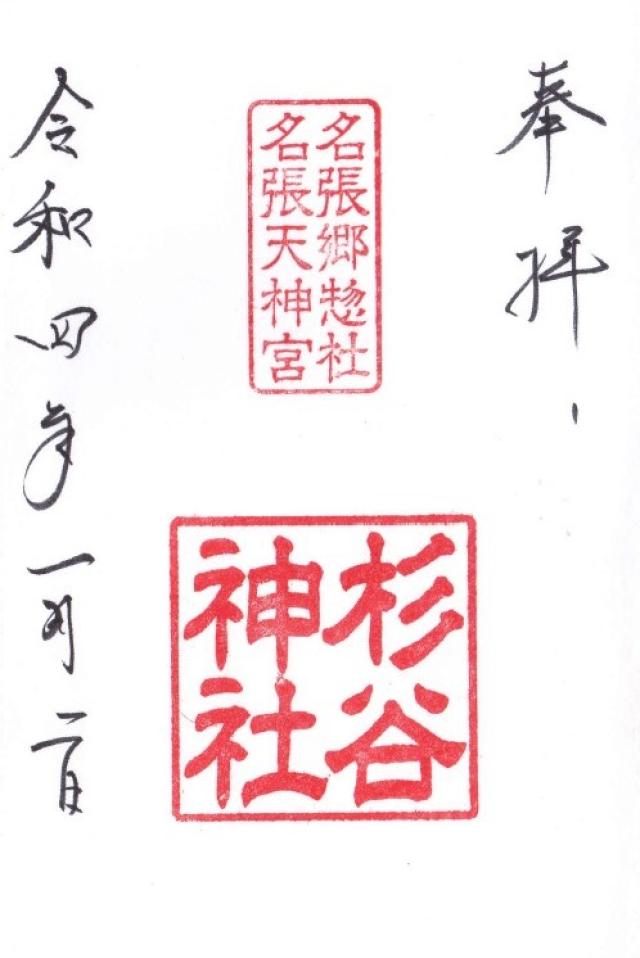 奉拝
名張郷惣社
名張天神宮
杉谷
神社
令和四年一月二日